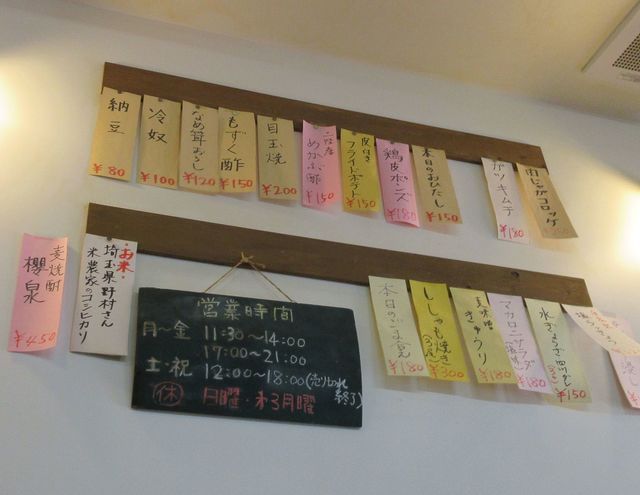 納豆
¥80
冷奴
¥100
なめ茸おろし
¥120
もずく酢
¥150
目玉焼
¥200
めかぶ酢
¥150
皮付き
フライドポテト
¥150
鶏皮ポンズ
¥180
本日のおひたし
¥150
ガツキムチ
¥180
肉じゃがコロッケ
麦焼酎
櫻泉
¥450
・お米・
埼玉県野村さん
米農家のコシヒカリ
営業時間
月〜金 11:30〜14:00
17:00〜21:00
土・祝 12:00〜18:00(売り切れ終了)
休 日曜・オ3月曜
本日のごま和え
¥180
ししゃも焼き
¥300
きゅうり
¥180
マカロニサラダ
¥180
¥150